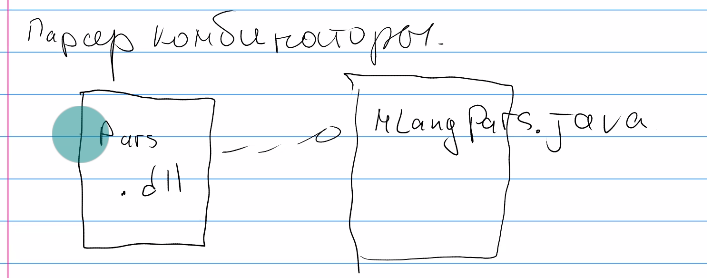 Парсер комбинаторы.
Pars
.dll
MLangPars.java